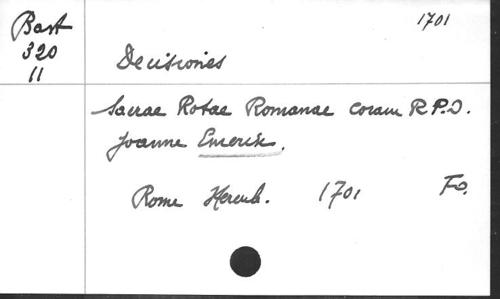 Bart
320
11
1701
Decisiones
Sacrae Rotae Romanae coram R.P.D.
Joanne Emerix.
Rome Hercul. 1701 Fo.